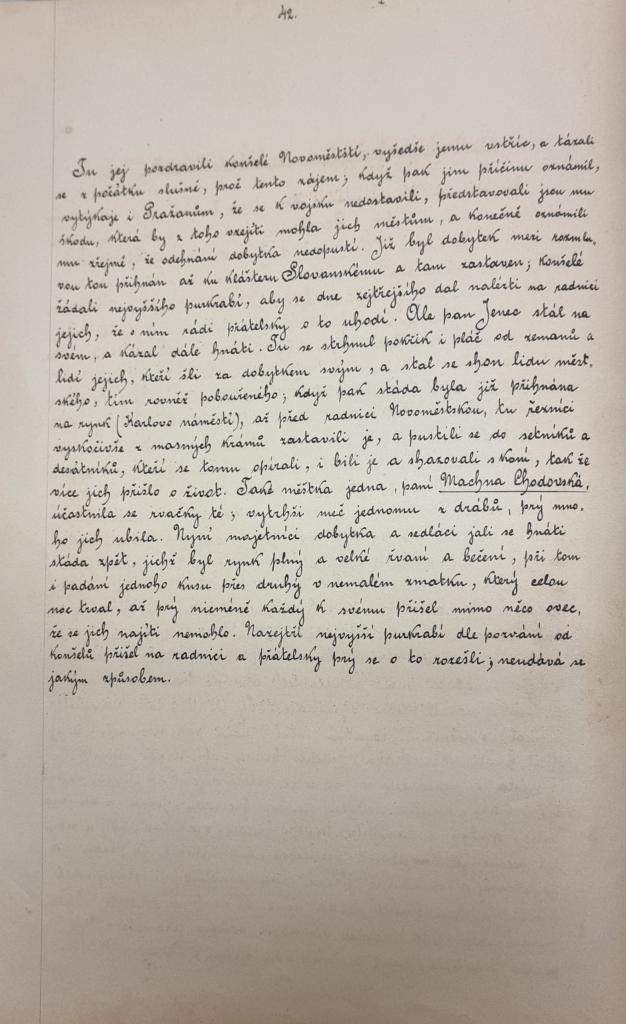 42.
Tu jej pozdravili konšelé Novoměstští, vyšedše jemu vstříc, a tázali
se z počátku slušně, proč tento zájem; když pak jim příčinu oznámil,
vytýkaje i Pražanům, že se k vojsku nedostavili, představovali jsou mu
škodu, která by z toho vzejíti mohla jich městům, a konečně oznámili
mu zřejmě, že odehnání dobytka nedopustí. Již byl dobytek mezi rozmlu-
vou tou přihnán až ku klášteru Slovanskému a tam zastaven; konšelé
žádali nejvyššího purkrabí, aby se dne zejtřejšího dal nalézti na radnici
jejich, že s ním rádi přátelsky o to uhodí. Ale pan Jenec stál na
svém, a kázal dále hnáti. Tu se strhnul pokřik i pláč od zemanů a
lidí jejich, kteří šli za dobytkem svým, a stal se shon lidu měst-
ského, tím rovněž pobouřeného; když pak stáda byla již přihnána
na rynk (Karlovo náměstí), až před radnici Novoměstskou, tu řezníci
vyskočivše z masných krámů zastavili je, a pustili se do setníků a
desátníků, kteří se tomu opírali, i bili je a shazovali s koní, tak že
více jich přišlo o život. Také měštka jedna, paní Machna Chodovská,
účastnila se rvačky té; vytrhši meč jednomu z drábů, prý mno-
ho jich ubila. Nyní majetníci dobytka a sedláci jali se hnáti
stáda zpět, jichž byl rynk plný a velké řvaní a bečení, při tom
i padání jednoho kusu přes druhý v nemalém zmatku, který celou
noc trval, až prý nicméně každý k svému přišel mimo něco ovec,
že se jich najíti nemohlo. Nazejtří nejvyšší purkrabí dle pozvání od
konšelů přišel na radnici a přátelsky prý se o to rozešli; neudává se
jakým způsobem.